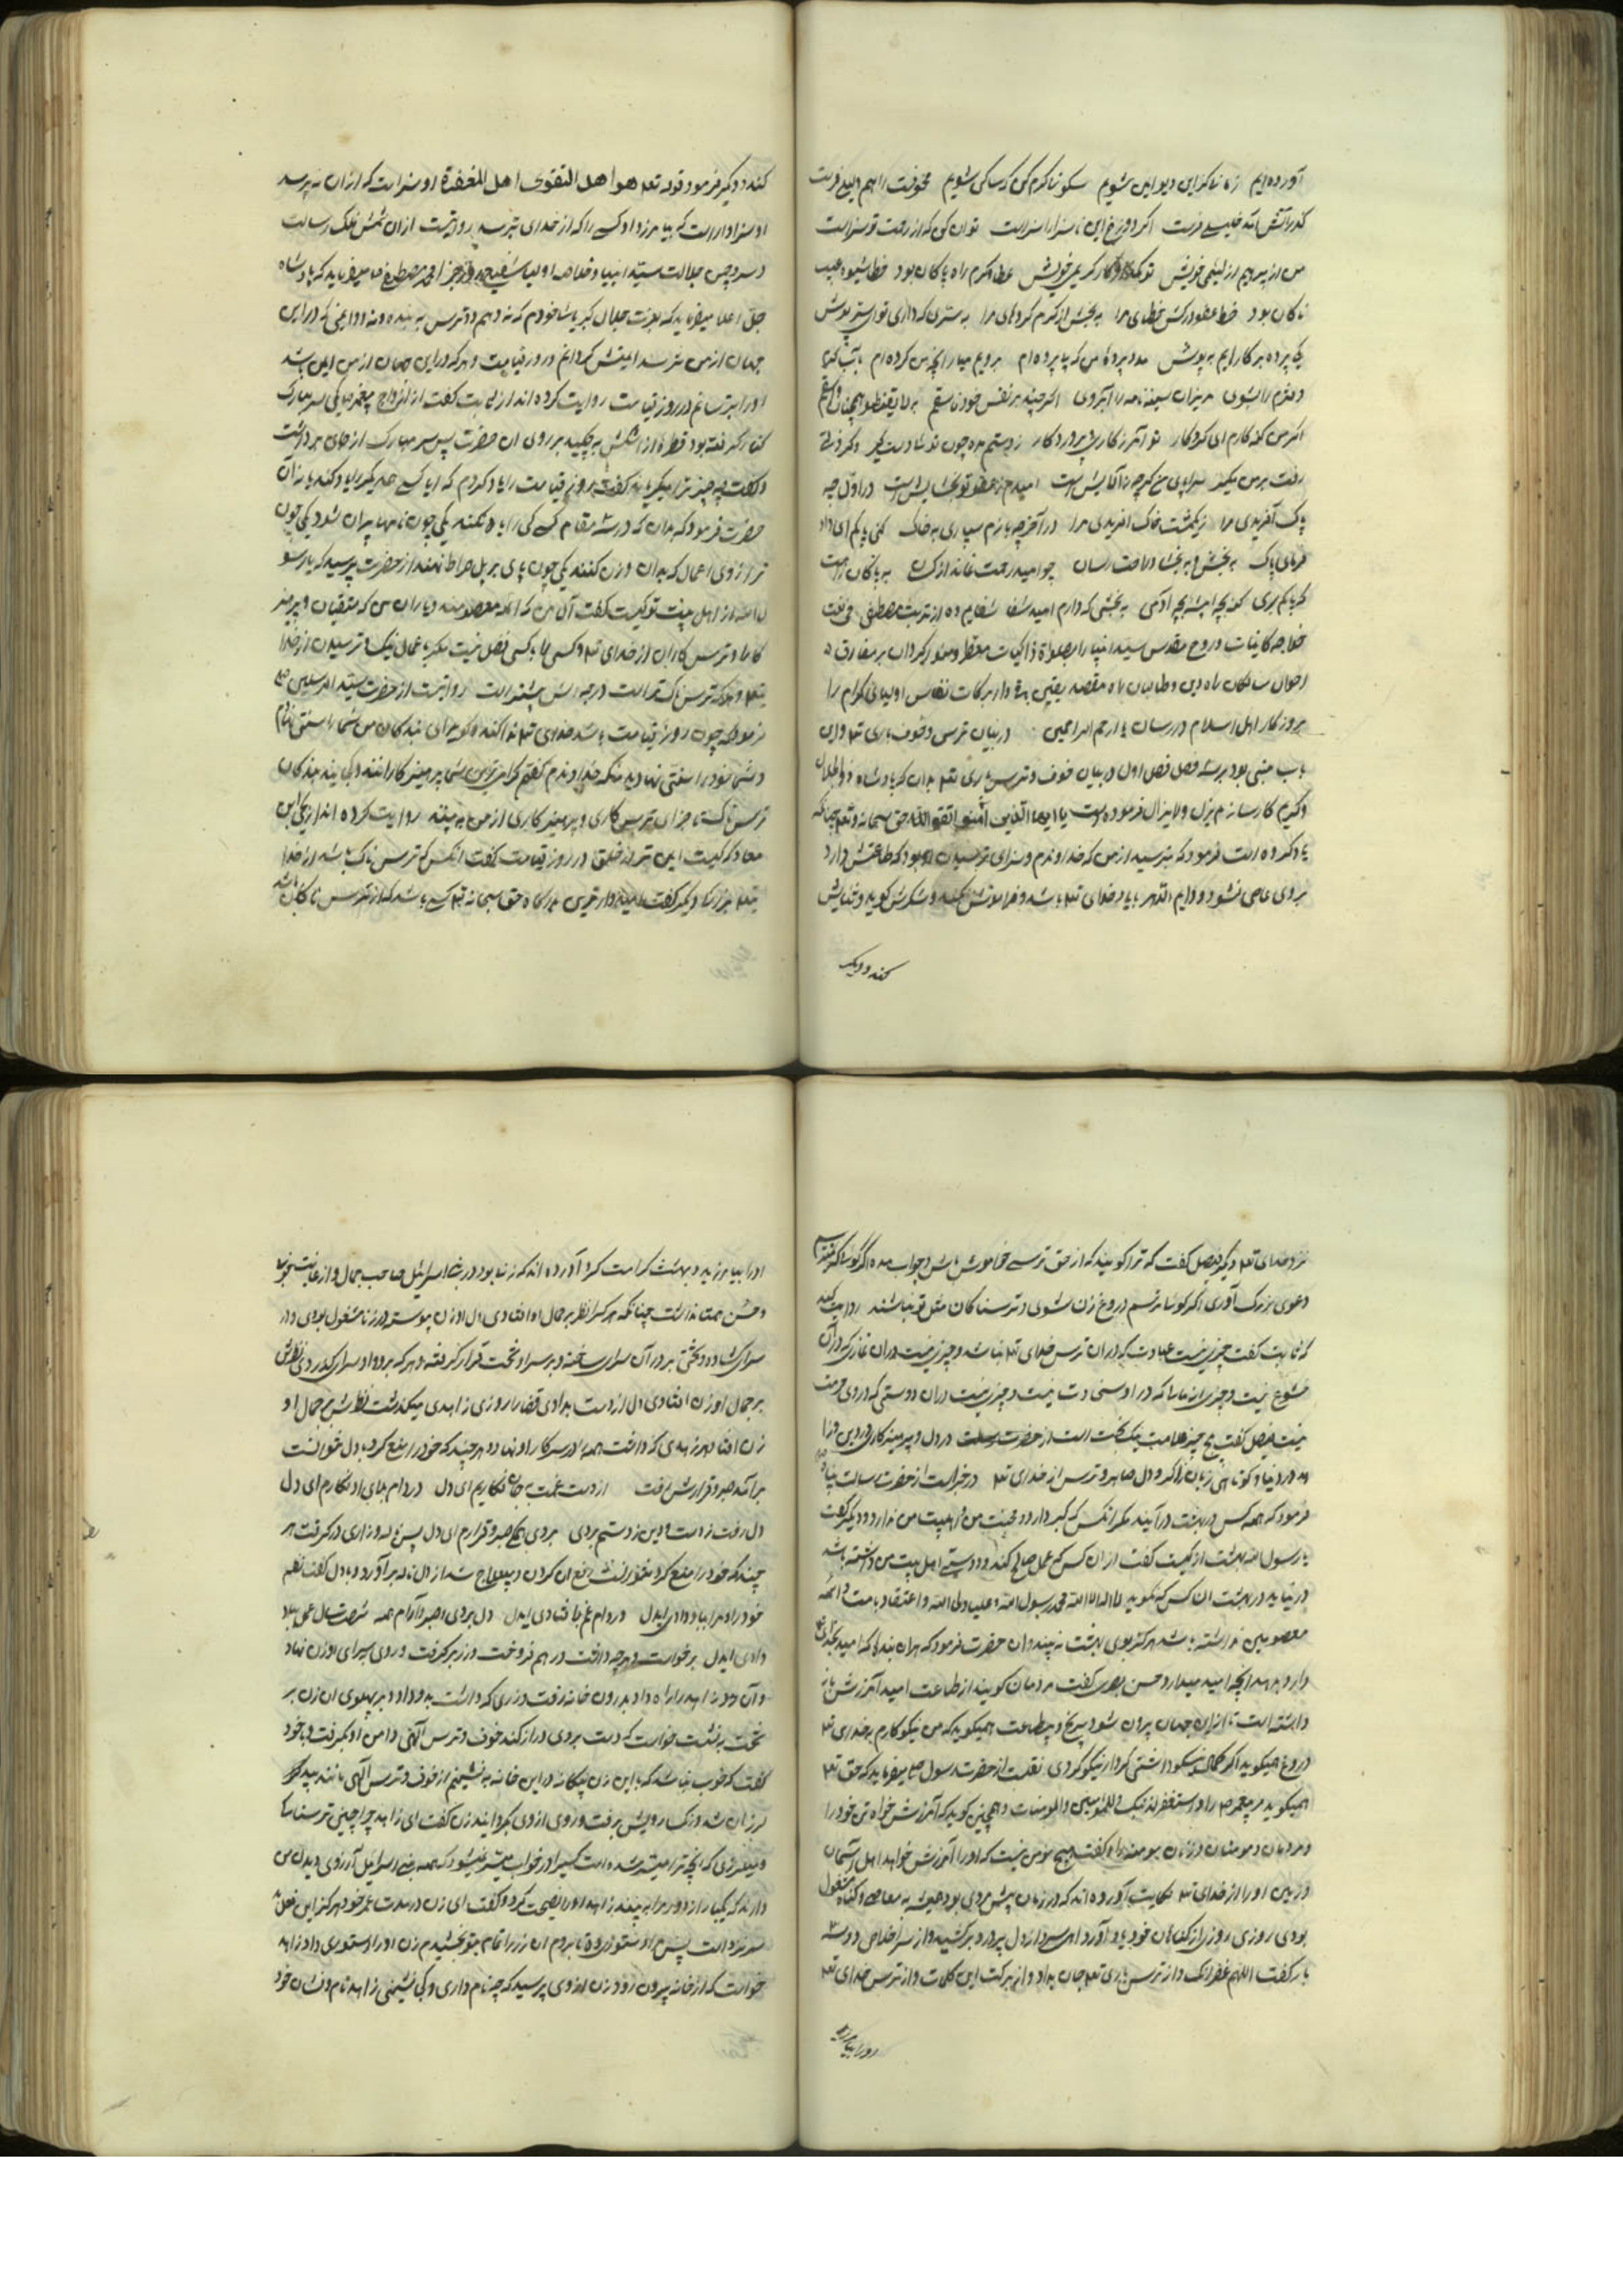 آورده‌ایم زمانا کزاین دیو ایمن شویم سکونتا کرم کن که ساکن شویم
کند رآتش آمد خلیلی فرست اگر دوزخ این ناسزا را سزاست توان کن که از رحمت تو سزاست
من از پیر ویم ارزلئیمی خویش تو کریمی خویش عطا و کرم راه پاکان بود خطا شیوه عیب
ناکان بود خط عفو درکش خطای مرا به بخش از کرم کرد های مرا به ستری که داری تو ای ستر پوش
یکی پرده بر کارایم به پوش مدد پرده من که با پرده‌ام برویم میار آنچه من کرده‌ام بآب کرم
دفترم را بشوی مریزان سیه نامه را آبروی اگر چند بر نفس خود فاسقم به لا تقنطوا همچنان واثقم
اگر من گنه کارم ای کردگار تو آمرزگاری و پروردگار ز دستم مده چون تو شادست گیر وگر ذلتی
رفت بر من مگیر سراپای من گرچه زآلایش است امیدم ز عفو تو بخشایش است در اول چه
پاک آفریدی مرا ز یک مشت خاک آفریدی مرا در آخر چه بازم سپاری به خاک کنی پاکم ای داد
فرمای پاک به بخش و به بخشا و راحت رسان چو امید رحمت نماند از کسان
گنه بچه امیشه بچه آدمی به بخشی که دارم امید شفا شفایم ده از تربت مصطفی
خلاصه کاینات و روح مقدس سید انبیا را بصلوة زاکیات معطر و منور گردان بر مفارق
احوال سالکان راه دین و طالبان راه مقصد یقین برکات نفایس اولیای کرام را
بروزکار اهل اسلام در رسان یا ارحم الراحمین در بیان ترس و خوف باری تعه و این
باب مبنی بود بر سه فصل فصل اول در بیان خوف و ترس باری تعه بدان که پادشاه ذوالجلال
و کریم کارساز لم یزل و لایزال فرموده است یا ایها الذین آمنوا اتقوا الله حق سبحانه و تعه چنانکه
یاد کرده است فرمود که بترسید از من که خداوندم و سزای ترسیدن بود که طاعتش دارد
بروی عاصی نشود و دایم الدهر بیاد خدای تعه باشد و فراموش نکند و شکرش گوید و ثنایش
کند و دیگر
کند و دیگر فرمود قوله تعه هو اهل التقوی اهل المغفرة او سزاست که ازان به پرسد
او سزاوار است که بیامرزد او کسی را که از خدای بترسد روایتست ازان شمس فلک رسالت
و سرو چمن جلالت سید انبیا و خلاصه اولیا محمد مصطفی ص میفرماید که پادشاه
جل و علا میفرماید که بعزت جلال کبریا شاه خودم که نه دهم دو ترس به بنده و نه دو ایمنی که در این
جهان از من ترسد ایمنش گردانم در روز قیامت و هر که در این جهان از من ایمن باشد
او را بترسانم در روز قیامت روایت کرده‌اند از عایشه گفت از ازواج پیغمبر ص یکی سر مبارک
کنار گرفته بود قطره از اشکش به چکید بر روی آن حضرت پس سر مبارک از جای بر داشت
و گفت چه چیز ترا میگریاند گفت روز قیامت را یاد کردم که آیا کسی مر یکدیگر را یاد کند یا نه آن
حضرت فرمود که بدان که در سه مقام کسی کس را یاد نکند یکی چون نامها پران شود یکی چون
ترازوی اعمال که بدان وزن کنند یکی چون پای بر پل صراط نهند از حضرت پرسید که یا رسو
ل الله از اهل بیت تو کیست گفت آل من که ائمه معصومند و یاران من که متقیان و پرهیز
کارند و ترس کاران از خدای تعه و کسی را بر کسی فضل نیست مگر باعمال نیک و ترسیدن از خدا
تعه و هر که ترس ناک تر است درجه‌اش بیشتر است روایتست از حضرت سید المرسلین ص
فرمود که چون روز قیامت باشد خدای تعه ندا کند و گوید ای بندکان من شما را نسبتی نهادم
و شما خود را نسبتی نهادید منکه خداوندم گفتم گرامی‌ترین شما پرهیز کارانند و کجایند بندکان
ترس ناک تا جزای ترس کاری و پرهیز کاری از من به بینند روایت کرده‌اند از یحیی ابن
معاد که کیست ایمن تر از خلق در روز قیامت گفت آنکس که ترس ناک باشد از خدا
تعه
نزد خدای تعه دیگر فیصل گفت که ترا گویند که از حق ترسی خاموش باش و جواب مده اگر گویی نترسم
دعوی بزرگ آوری اگر گویی ترسم دروغ زن شوی و ترسناکان مثل تو نباشند روایت کرد
که ثابت گفت چیزی نیست عبادت که در آن ترس خدای تعه نباشد و چیزی نیست در آن نمازی که در آن
خشوع نیست و چیزی نیست مالی را که در او سخاوت نیست و چیزی نیست در آن دوستی که در وی حرمت
نیست فیصل گفت پنج چیز علامت نیک بخت است در دل و پرهیزکاری در دین و زا
هد در دنیا و کوتاهی زبان و ذاکر و دل صابر و ترس از خدای تعه در خبر است از حضرت رسالت پناه ص
فرمود که همه کس در بهشت درآیند مگر آنکس که کبر دارد و محبت من و اهلبیت من ندارد و دیگر گفت
یا رسول الله بهشت از کیست گفت از آن کس که عمل صالح کند و دوستی اهل بیت من داشته باشد
در نیاید در بهشت آن کس که نگوید لا اله الا الله محمد رسول الله علیا ولی الله و اعتقاد بامت و ائمه
معصومین نداشته باشد هرگز بوی بهشت نه بیند و آن حضرت فرمود که هر آن بنده که امید بخدای تعه
دارد بدهد آنچه امید میدارد حسن بصری گفت مردمان گویند از طاعت امید آمرزش باز
داشته است تا ازین جهان بیرون شود بی‌رنج و بیطاعت همیگوید که من نیکو کارم به خدای تعه
دروغ همیگوید اگر گمان نیکو داشتی کردار نیکو کردی نقلست از حضرت رسول ص میفرماید که حق تعه
همیگوید مر پیغمبر ص را و استغفر لذنبک و للمؤمنین و المؤمنات و همچنین گوید که آمرزش خواه تن خود را
و مردمان و مومنان و زنان مومنه را و گفت هیچ مؤمن نیست که او را آمرزش خواهد اهل آسمان
و زمین او را از خدای تعه حکایت آورده‌اند که در زمان پیش مردی بود همیشه به معاصی و گناه مشغول
بودی روزی روزی از گناهان خود یاد آورد آه سرد از دل پر درد برکشید و از سر اخلاص دو سه
بار گفت اللهم غفرانک و از ترس باری تعه جان بداد و از برکت این کلمات و از ترس خدای تعه
او را بیامرزید
او را بیامرزید و بهشت کرامت کرد آورده‌اند که زنی بود در بنی اسرائیل صاحب جمال و از غایت خوبی
و حسن همتا نداشت چنانکه هر که را نظر بر جمال او افتادی دل او زن پیوسته در زنا مشغول بودی و در
سرای گشاده و تختی بر در آن سرای ساخته و بر سر او تخت قرار گرفته و هر که بر در او سرای گذر دی نظرش
بر جمال او زن افتادی دل از دست بدادی قضا را روزی زاهدی میگذشت نظرش بر جمال او
زن افتاد هر زهدی که داشت همه در سر کار او نهاد و هر چند که خود را منع کرد با دل خوانست
بر آمد صبر و قرارش نرفت از دست غمت بجان نگاریم ای دل در دام بلای او نگارم ای دل
دل رفت ز دست و دین ز دستم بردی بردی همه صبر و قرارم ای دل پس ناله و زاری در گرفت هر
چند که خود را منع کرد نتوانست منع آن کردن و بی علاج شد از دل ناله بر آورد و با دل گفت نظم
خود را و مرا بباد دادی ایدل در دام غم بلا فتادی ایدل دل بردی و صبر و آرام همه
دادی ایدل برخواست و هر چه داشت در هم فروخت و زر برگرفت و روی سرای او زن نهاد
و آن زن زاهد را راه داد بدرون خانه رفت و زری که داشت بدو داد و بر پهلوی آن زن بر
تخت بنشست خواست که دست بروی دراز کند خوف و ترس آلهی دامن او بگرفت و با خود
گفت که خوب نباشد که با این زن بیگانه در این خانه به نشینم از خوف و ترس آلهی مانند بید
لرزان شد و رنگ رویش برفت و روی از وی بگردانید زن گفت ای زاهد چرا چنین ترسناکی
و میلرزی که آنچه ترا میسر شده است کسی را در خواب میسر نمیشود که همه بنی اسرائیل آرزوی دیدن من
دارند که یکبار از دور مرا به بینند زاهد او را نصیحت کرد و گفت ای زن در مدت عمر خود هرگز این فعل
سر نزده است پس مرا دستوری ده تا بروم این زر را تمام بتو بخشیدم زن او را دستوری داد زاهد
خواست که از خانه بیرون رود زن از وی پرسید که چه نام داری و کجا نشینی زاهد نام و نشان خود